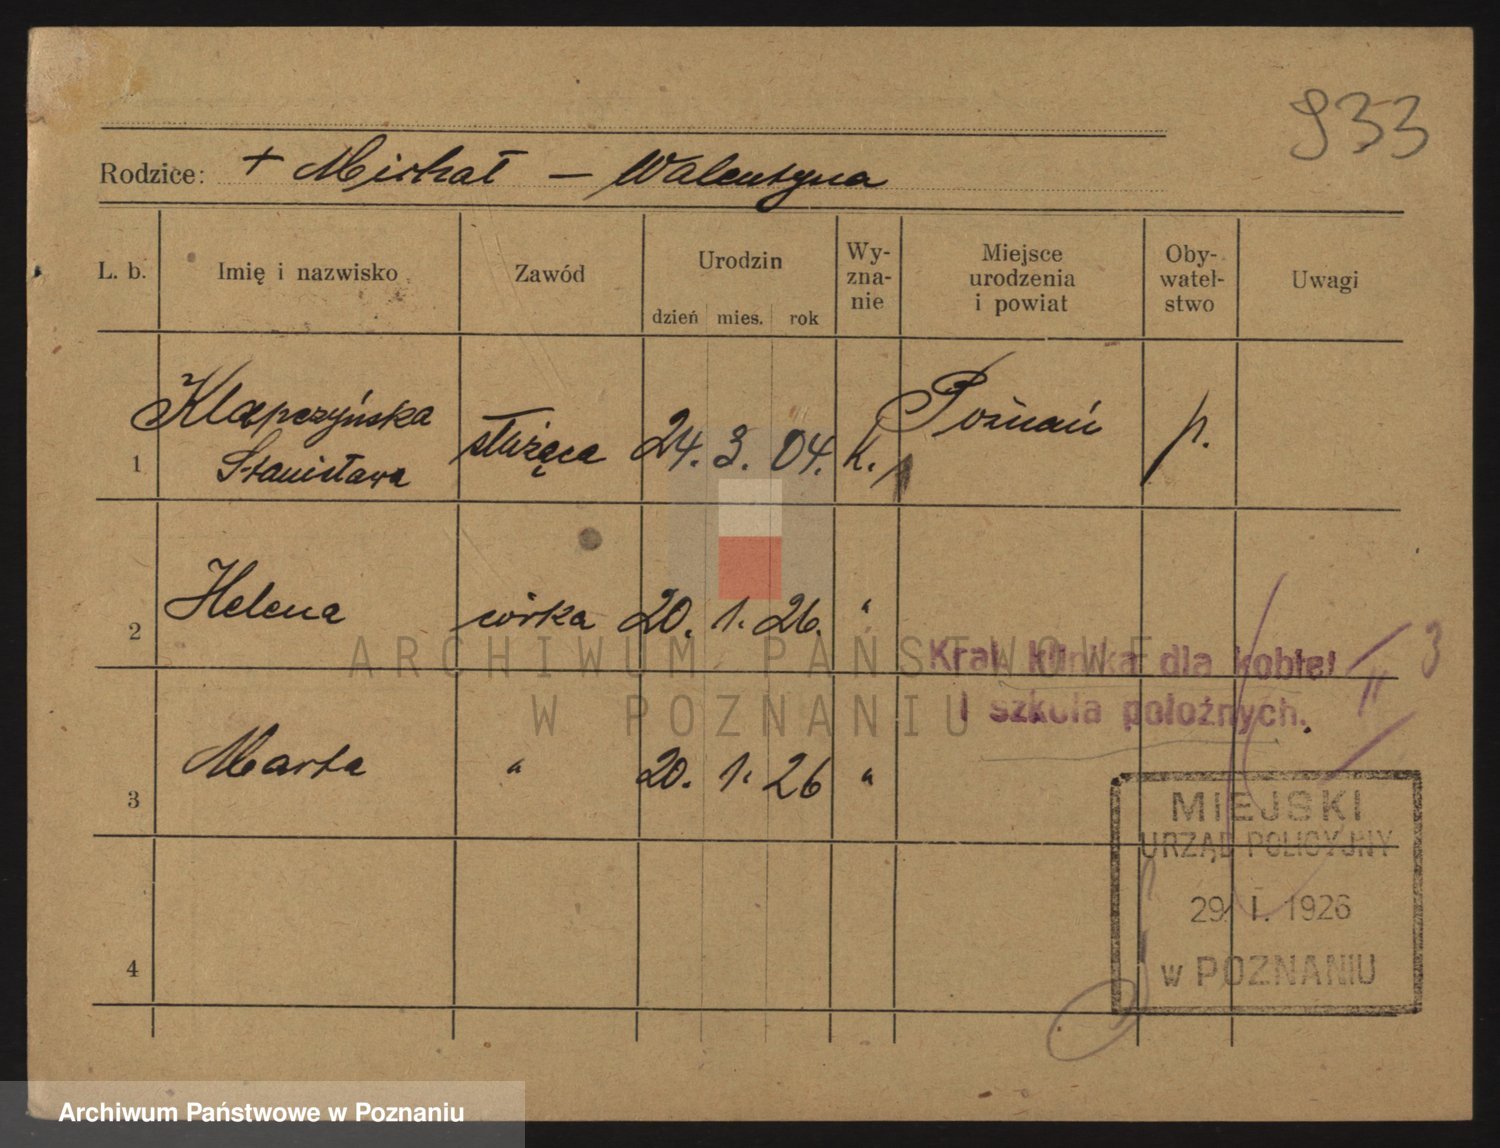 933
Rodzice: + Michał – Walentyna
L. b. Imię i nazwisko Zawód Urodzin dzień mies. rok Wy-zna-nie Miejsce urodzenia i powiat Oby-watel-stwo Uwagi
1 Klapczyńska Stanisława służąca 24. 3. 04. k. Poznań p.
2 Helena córka 20. 1. 26. "
Kraj. klinika dla kobiet
i szkoła położnych.
3 Marta " 20. 1. 26 "
4
MIEJSKI
URZĄD POLICYJNY
29. I. 1926
w POZNANIU
ARCHIWUM PAŃSTWOWE
W POZNANIU
Archiwum Państwowe w Poznaniu